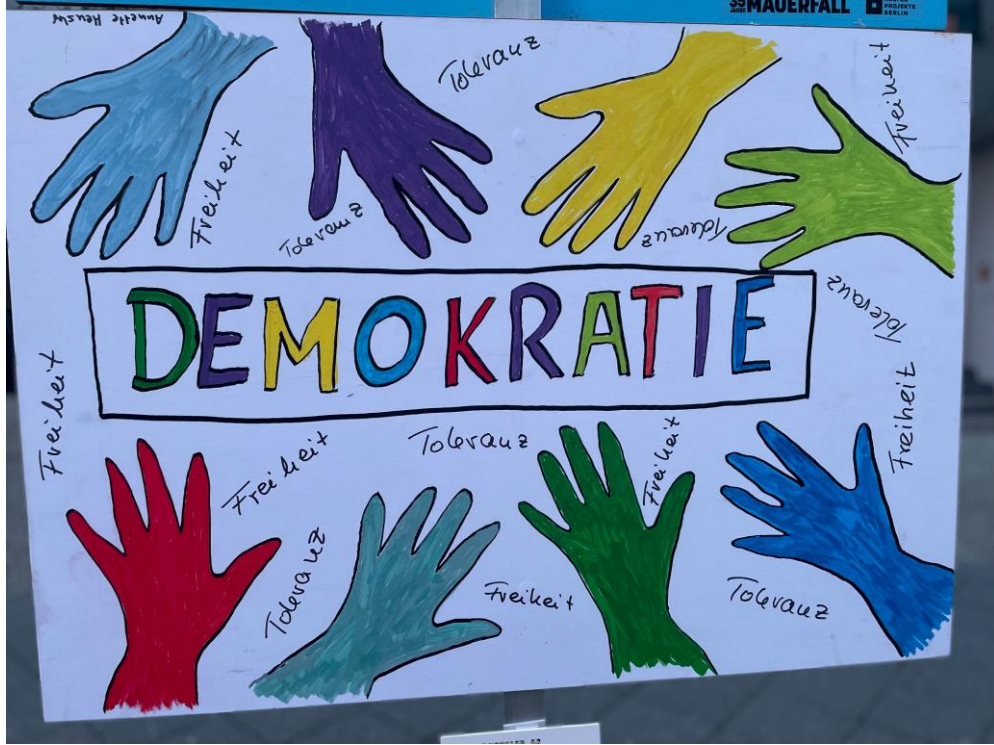 35 JAHRE MAUERFALL
KULTUR PROJEKTE BERLIN
Annette
Toleranz
Freiheit
Freiheit
Toleranz
Toleranz
Toleranz
DEMOKRATIE
Freiheit
Freiheit
Freiheit
Toleranz
Freiheit
Toleranz
Freiheit
Toleranz